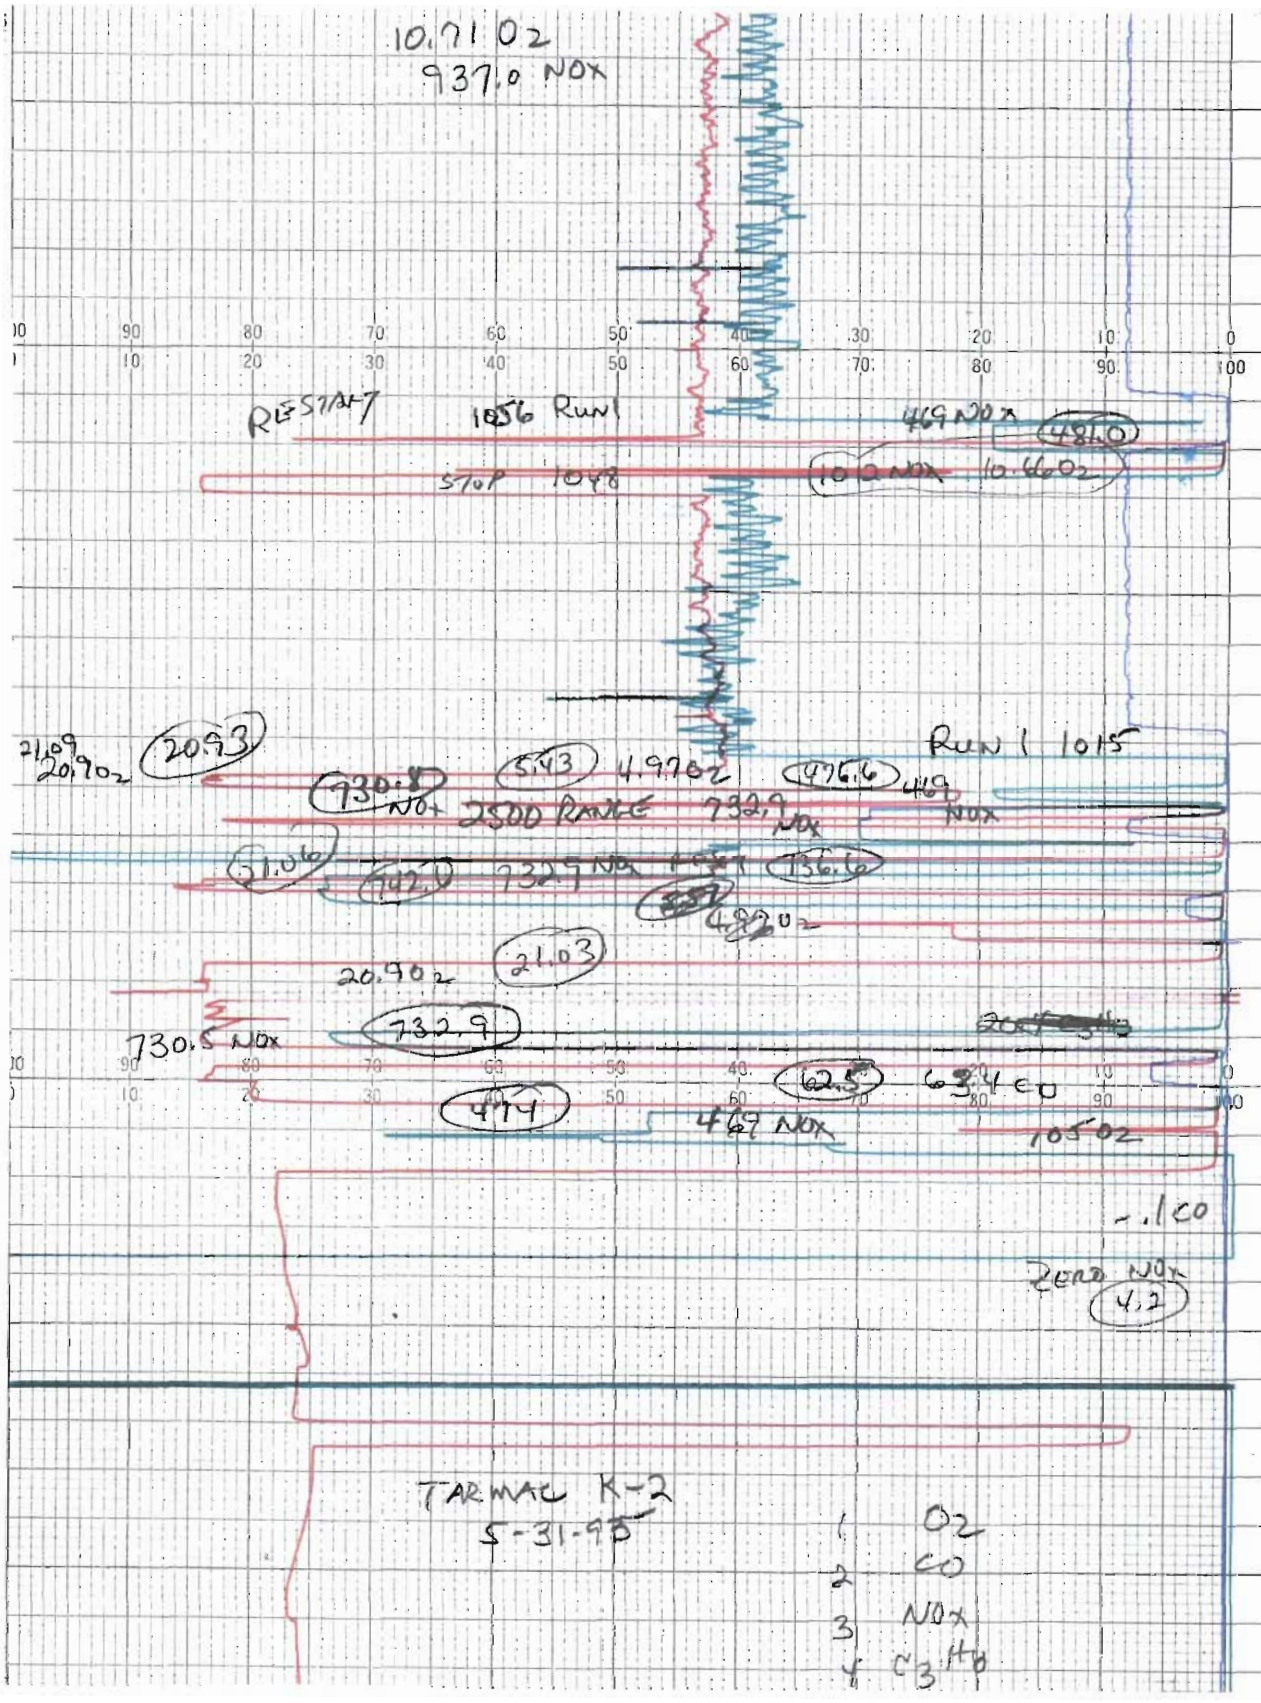 10.71 O2
937.0 NOX
00 90 80 70 60 50 40 30 20 10 0
10 20 30 40 50 60 70 80 90 100
RESTART 1056 RUN 1
469 NOX 481.0
STOP 1048
1012 NOX 10.66 O2
RUN 1 1015
21.09
20.9 O2 20.93
5.43 4.97 O2 476.6 469 NOX
730.8 NOX 2500 RANGE 732.9 NOX
21.06
742.0 732.9 NOX 736.6
4.97 O2
20.9 O2 21.03
730.5 NOX 732.9
00 90 80 70 60 50 40 30 20 10 0
10 20 30 40 50 60 70 80 90 100
62.5 63.4 CO
474 469 NOX
.105 O2
-.1 CO
ZERO NOX
4.2
TARMAC K-2
5-31-95
1 O2
2 CO
3 NOX
4 C3H8